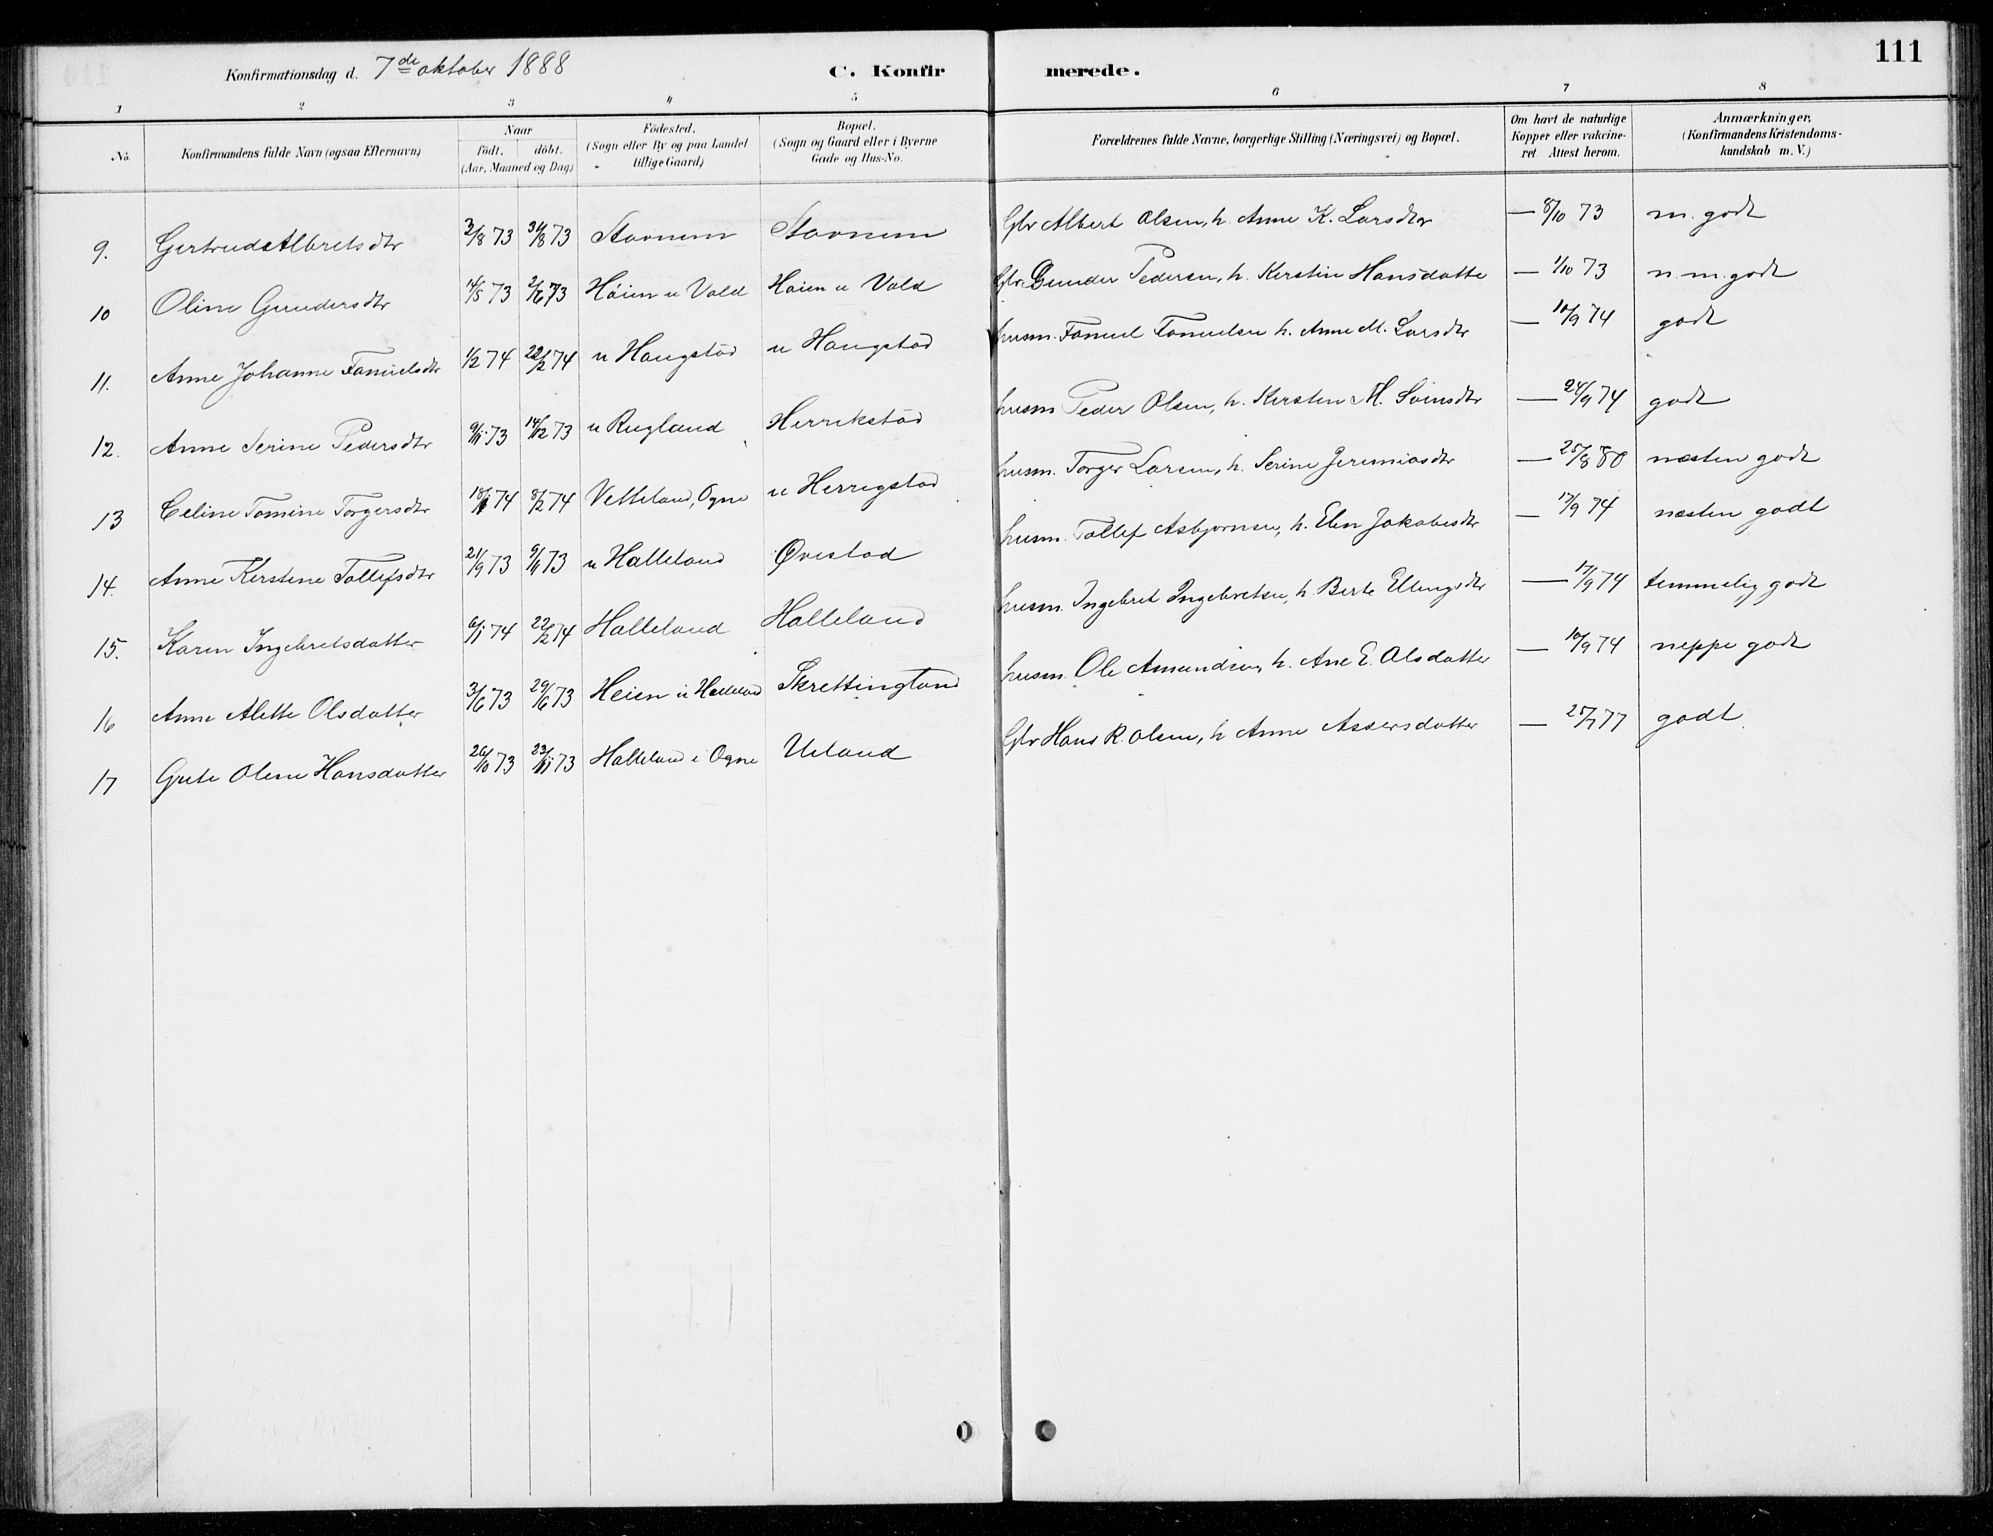 Konfirmationsdag d. 7de oktober 1888 C. Konfir merede. 111
1 2 3 4 5 6 7 8
No. Konfirmandens fulde Navn (ogsaa Efternavn) Naar födt. döbt. (Aar, Maaned og Dag) Födested. (Sogn eller By og paa Landet tillige Gaard) Bopæl. (Sogn og Gaard eller i Byerne Gade og Hus-No. Forældrenes fulde Navne, borgerlige Stilling (Næringsvei) og Bopæl. Om havt de naturlige Kopper eller vakcineret. Attest herom. Anmærkninger, (Konfirmandens Kristendomskundskab m. V.)
9. Gertrude Albretsdtr 3/8 73 31/8 73 Stavnem Stavnem Gbr Albert Olsen, h. Anne K. Larsdtr — 8/10 73 m. godt
10 Oline Gundersdtr 14/5 73 2/6 73 Höien u Vold Höien u Vold Gbr. Gunder Pedersen, h. Kerstin Hansdatte — 1/10 73 n. m. godt
11. Anne Johanne Tønnielsdtr 1/2 74 22/2 74 u Haugstad u Haugstad husm. h. Anne M. Larsdtr — 10/9 74 godt
12. Anne Serine Pedersdtr 9/11 73 14/12 73 u Rugland Herrikstad husm Peder Olsen, h. Kersten M. Svinsdtr — 24/9 74 godt
13 Celine Tomine Torgersdtr 18/1 74 8/2 74 Vetteland, Ogne u Herregstad husm. Torger Larsen, h. Serine Jeremiasdtr — 25/8 80 næsten godt
14. Anne Kerstene Tollefsdtr 21/9 73 9/11 73 u Halleland Qvestad husm. Tollef Asbjornsen, h. Elen Jakobsdtr — 17/9 74 næsten godt
15. Karen Ingebretsdatter 6/1 74 22/2 74 Halleland Halleland husm. Ingebret Ingebretsen, h Berte Ellingsdtr — 17/9 74 temmelig godt
16 Anne Alette Olsdatter 3/6 73 29/6 73 Heien u Halleland Skrettingland husm. Ole Amundsen, h. Ane E. Olsdatter — 10/9 74 neppe godt
17 Grete Olene Hansdatter 26/10 73 23/11 73 Halleland i Ogne Ueland Gbr Hans R. Olsen, h Anne Assersdatter — 25/7 77 godt